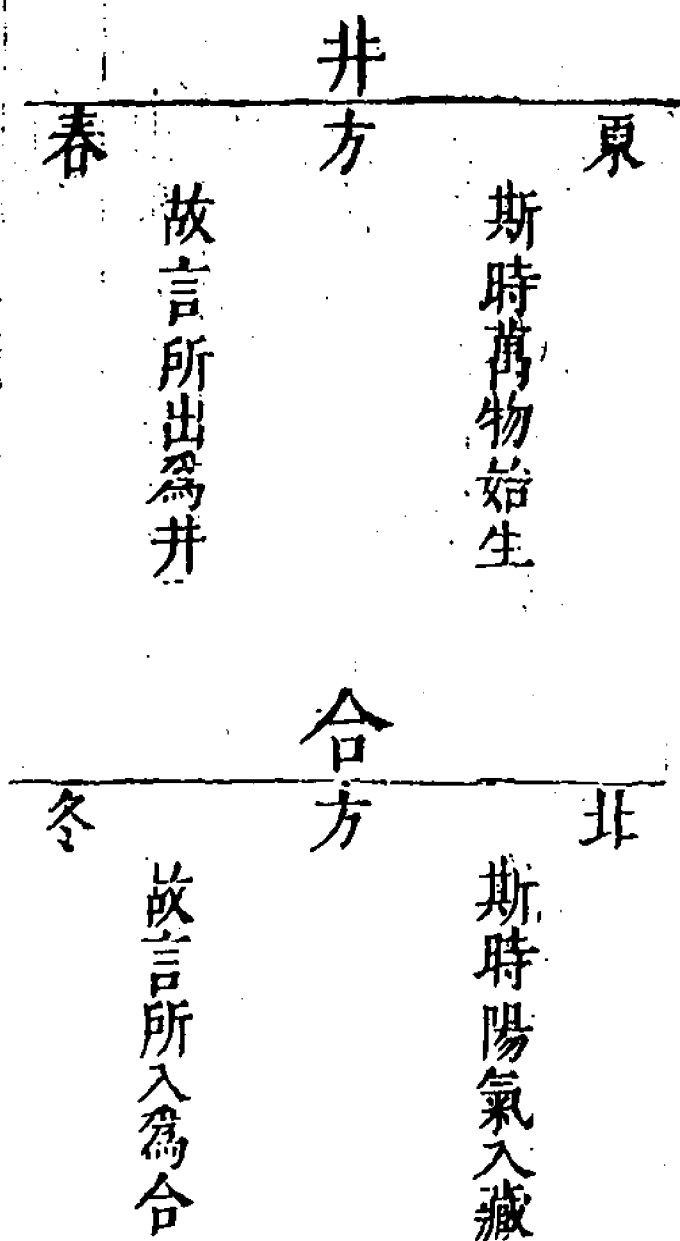 井
東方春
斯時萬物始生
故言所出爲井
合
北方冬
斯時陽氣入藏
故言所入爲合